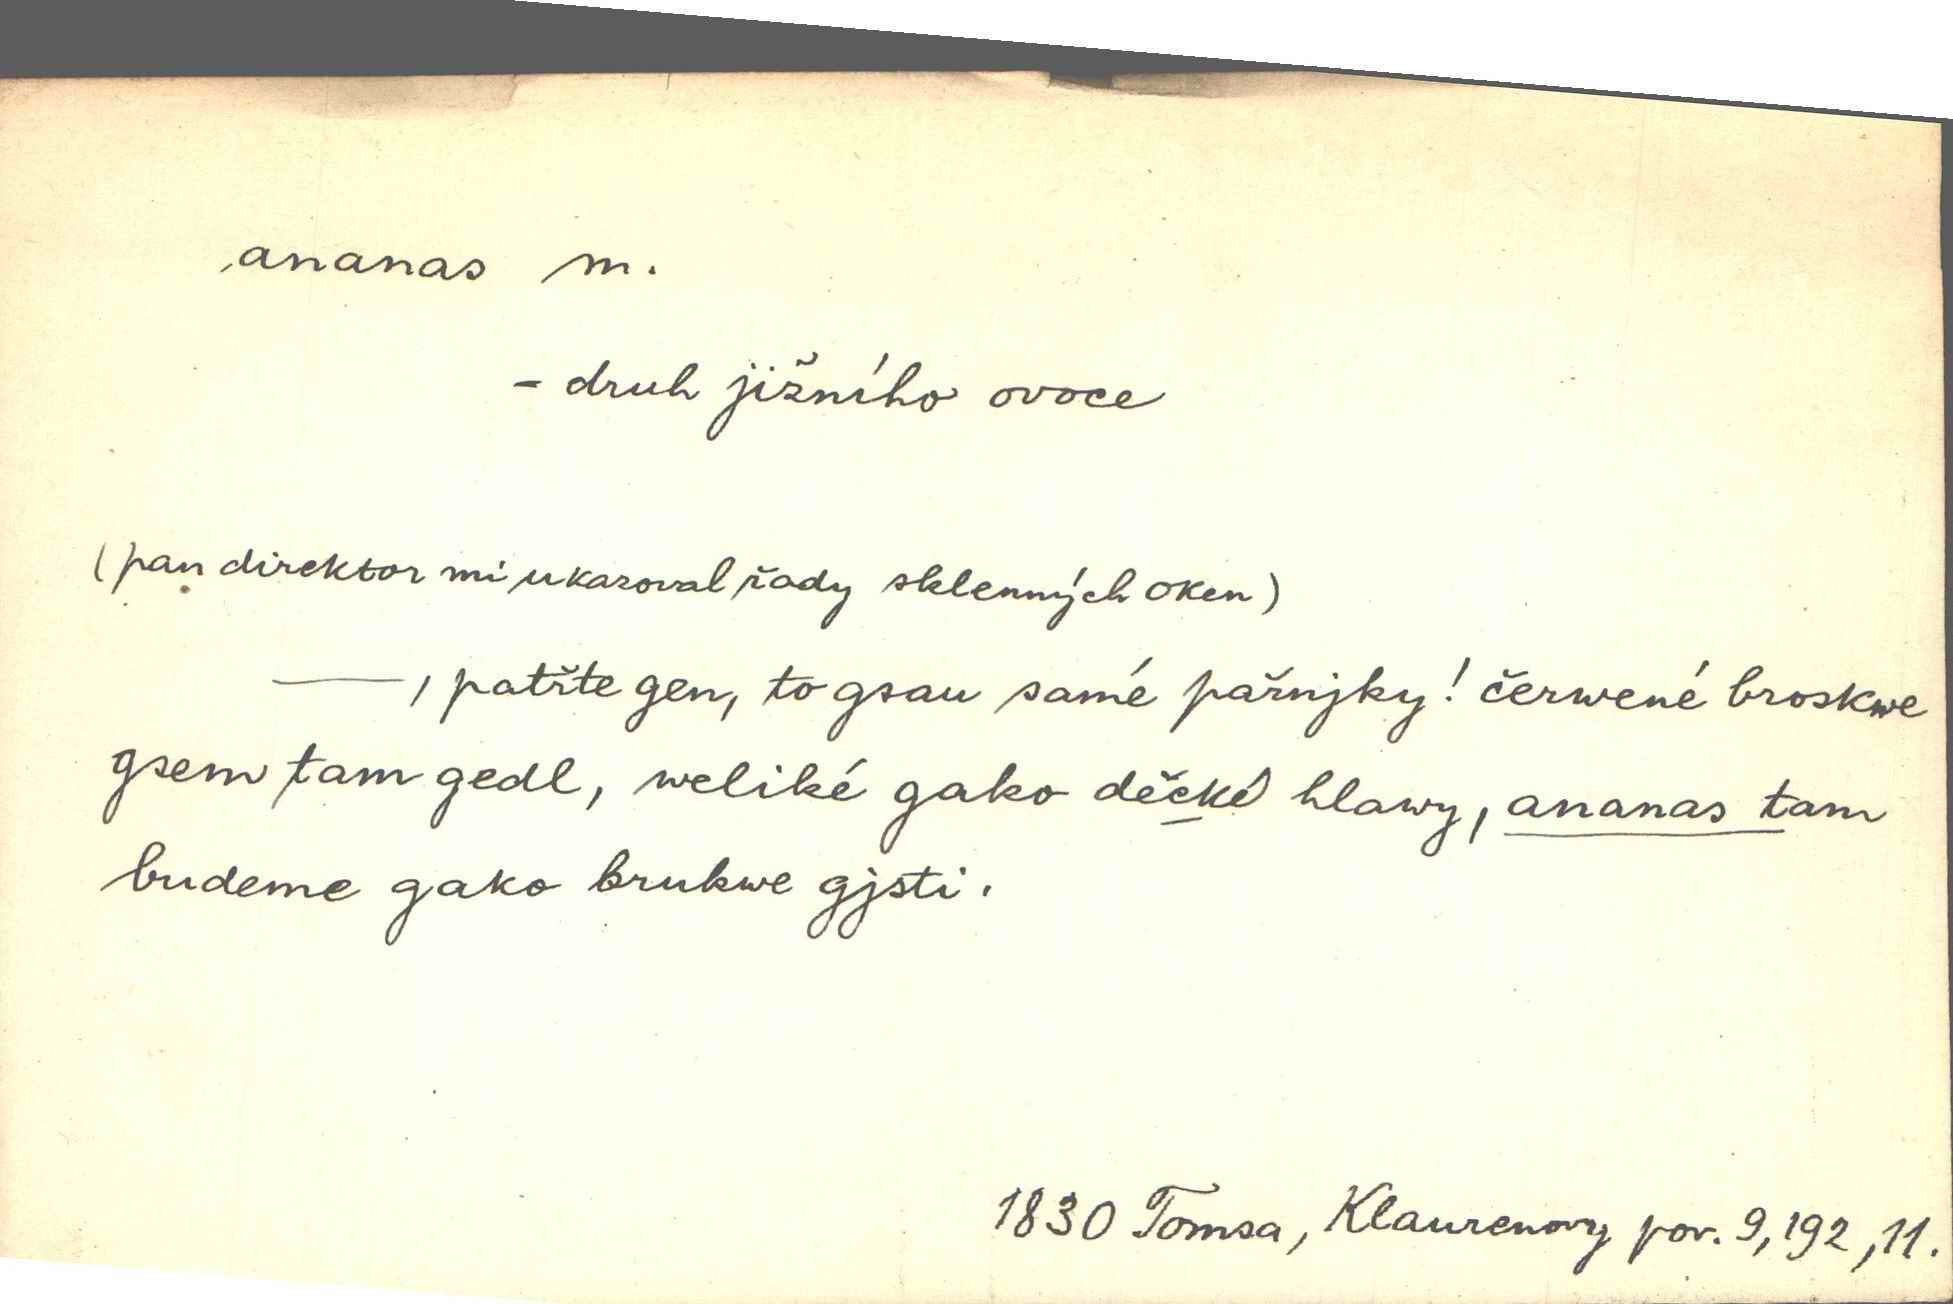 ananas m.
- druh jižního ovoce
(pan direktor mi ukazoval řady sklenných oken)
—, patřte gen, to gsau samé pařnjky! čerwené broskwe
gsem tam gedl, weliké gako děcké hlawy, ananas tam
budeme gako brukwe gjsti.
1830 Tomsa, Klaurenovy pov. 9, 192, 11.